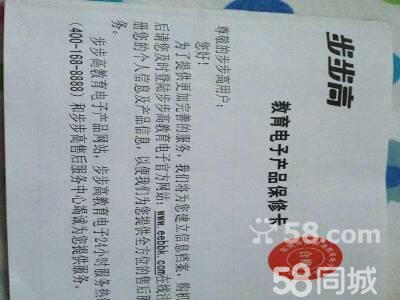 步步高
教育电子产品保修卡
尊敬的步步高用户：
您好！
为了提供更加完善的服务，我们将为您建立信息档案，购机
后请您及时登陆步步高教育电子官方网站：www.eebbk.com在线注
册您的个人信息及产品信息，以便我们为您提供全方位的售后服
务。
步步高教育电子产品网站，步步高教育电子24小时服务热
(400-168-8888) 和步步高售后服务中心竭诚为您提供服务。
合格
58.com
58同城